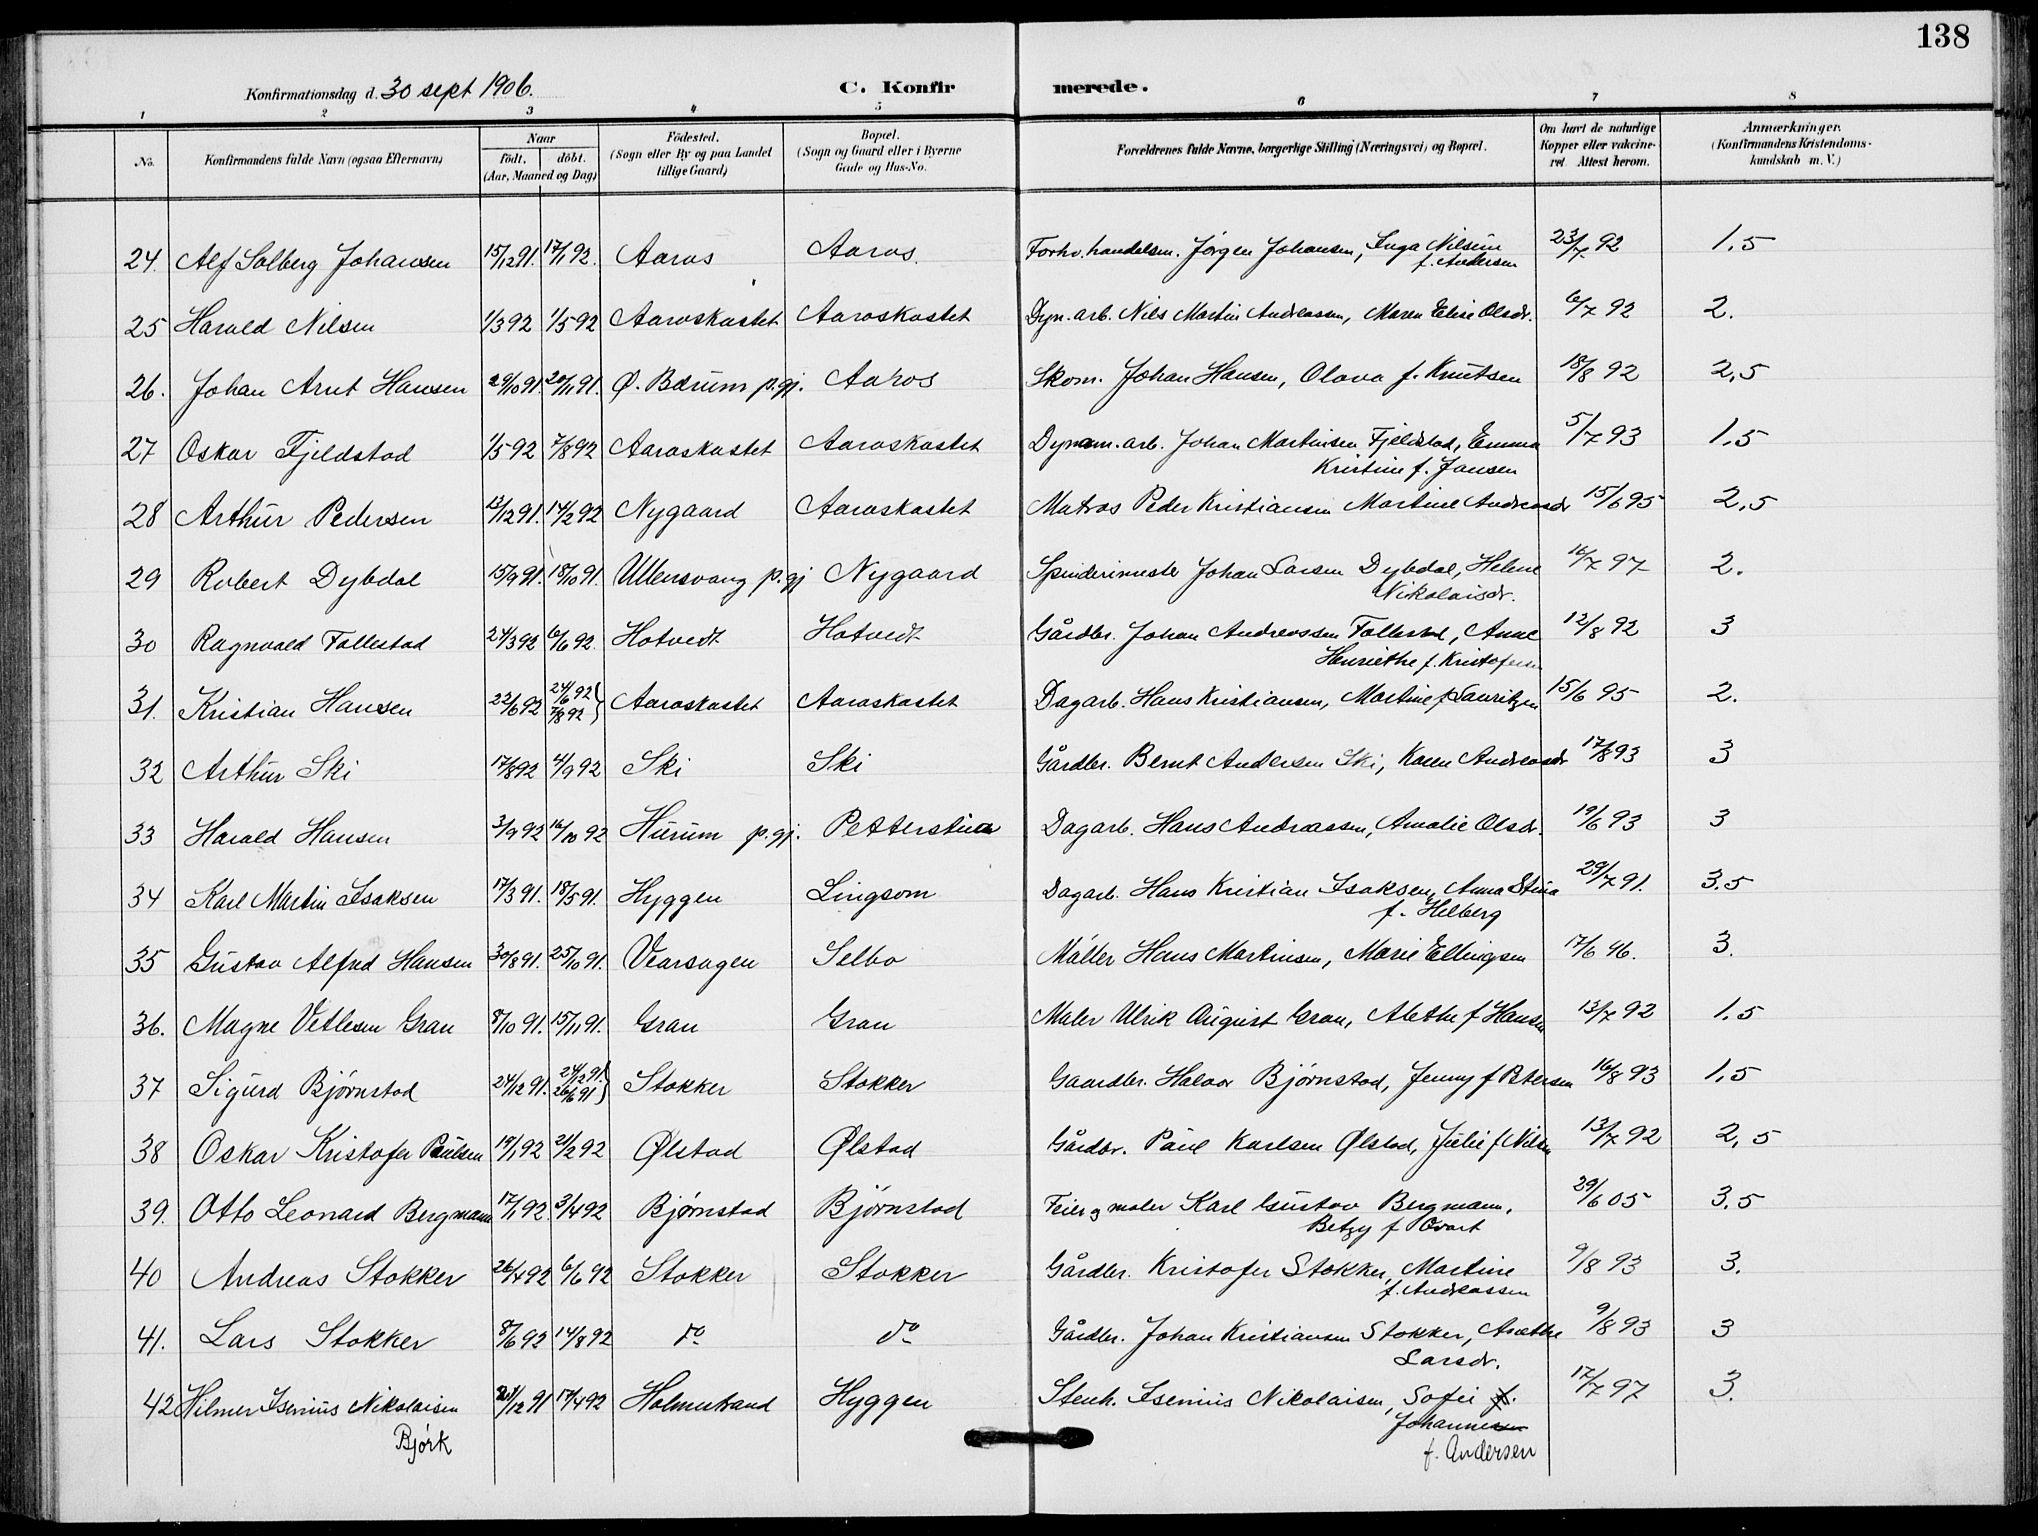 138
Konfirmationsdag d. 30 sept 1906.
C. Konfirmerede.
1 2 3 4 5 6 7 8
No.
Konfirmandens fulde Navn (ogsaa Efternavn)
Naar
födt. döbt.
(Aar, Maaned og Dag)
Födested.
(Sogn eller By og paa Landet
tillige Gaard)
Bopæl.
(Sogn og Gaard eller i Byerne
Gade og Hus-No.
Forældrenes fulde Navne, borgerlige Stilling (Næringsvei) og Bopæl.
Om havt de naturlige
Kopper eller vakcine-
ret. Attest herom.
Anmærkninger.
(Konfirmandens Kristendoms-
kundskab m. V.)
24. Alf Solberg Johansen 15/12 91. 17/1 92. Aaros Aaros. Forhv. handelsm. Jörgen Johansen, Inga Nilsine 23/7 92 1,5
f. Andersen
25 Harald Nilsen 1/3 92 1/5 92 Aaroskastet Aaroskastet Dyn. arb. Nils Martin Andreassen, Maren Elise Olsdr. 6/7 92 2.
26. Johan Arnt Hansen 29/10 91. 20/11 91. Ø. Bærum p.gj. Aaros Skom. Johan Hansen, Olava f. Knutsen 18/8 92 2,5
27 Oskar Fjeldstad 1/5 92 7/8 92 Aaroskastet Aaroskastet Dynam. arb. Johan Martinsen Fjeldstad, Emma 5/7 93 1,5
Kristine f. Jansen
28 Arthur Pedersen 13/12 91. 14/2 92 Nygaard Aaroskastet Matros Peder Kristiansen Martine Andreasdr 15/6 95 2,5
29 Robert Dybdal 15/9 91. 18/10 91. Ullensvang p.gj Nygaard Spinderimester Johan Larsen Dybdal, Helene 16/7 97 2.
Nikolaisdr.
30 Ragnvald Follestad 24/3 92 6/6 92. Hotvedt Hotvedt Gårdbr. Johan Andreassen Follestad, Anne 12/8 92 3
Henriethe f. Kristofersen
31. Kristian Hansen 22/6 92 24/6 92 Aaroskastet Aaroskastet Dagarb. Hans Kristiansen, Martine f Lauritzen 15/6 95 2.
7/8 92
32 Arthur Ski 17/8 92 4/9 92 Ski Ski Gårdbr. Bernt Andersen Ski, Karen Andreasdr 17/8 93 3
33 Harald Hansen 3/9 92 16/10 92 Hurum p.gj. Petterstua Dagarb. Hans Andreassen, Amalie Olsdr. 19/6 93 3
34 Karl Martin Isaksen 17/3 91. 18/5 91. Hyggen Lingsom Dagarb. Hans Kristian Isaksen, Anna Stina 29/7 91. 3.5
f. Helberg
35 Gustav Alfred Hansen 30/8 91. 25/10 91. Vearsagen Selbo Möller Hans Martinsen, Marie Ellingsen 17/6 96. 3.
36. Magne Vetlesen Gran 8/10 91. 15/11 91. Gran Gran Maler Ulrik August Gran, Alethe f Hansen 13/7 92 1.5
37 Sigurd Bjørnstad 24/12 91. 24/12 91. Stokker Stokker Gaardbr. Halvor Bjørnstad, Jenny f Petersen 16/8 93 1,5
26/6 91
38 Oskar Kristofer Paulsen 19/1 92 21/2 92 Ølstad Ølstad Gårdbr. Paul Karlsen Ølstad, Julie f Nilsen 13/7 92 2,5
39. Otto Leonard Bergmann 17/1 92. 3/4 92 Bjørnstad Bjørnstad Feier og maler Karl Gustav Bergmann, 29/6 05 3,5
Betzy f Qvart
40 Andreas Stokker 26/4 92 6/6 92 Stokker Stokker Gårdbr. Kristofer Stokker, Martine 9/8 93 3.
f. Andreassen
41. Lars Stokker 8/6 92 14/8 92 do do Gårdbr. Johan Kristiansen Stokker, Anethe 9/8 93 3
Larsdr.
42 Hilmer Isenius Nikolaisen 21/12 91 17/4 92 Holmestrand Hyggen Stenh. Isenius Nikolaisen, Sofie f. 17/7 97 3.
Bjørk Johannesen
f. Andersen